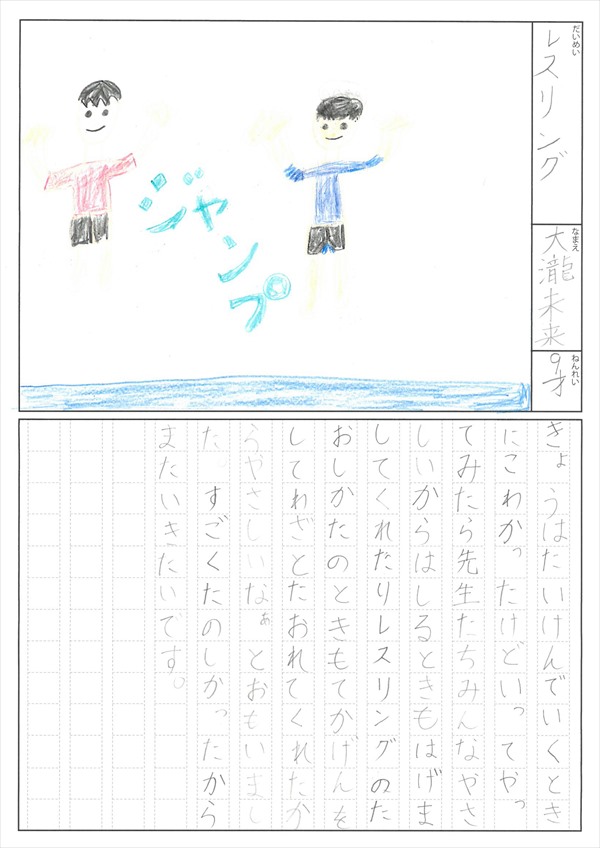 だいめい
レスリング
なまえ
大瀧未来
ねんれい
9才
ジャンプ
きょうはたいけんでいくとき
にこわかったけどいってやっ
てみたら先生たちみんなやさ
しいからはしるときもはげま
してくれたりレスリングのた
おしかたのときもてかげんを
してわざとたおれてくれたか
らやさしいなぁとおもいまし
た。すごくたのしかったから
またいきたいです。